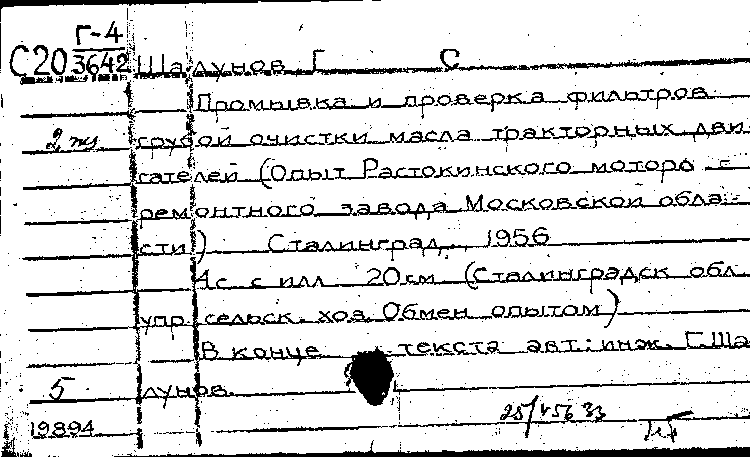 С20 Г-4/3642 Шалунов Г С
Промывка и проверка фильтров
2 грубой очистки масла тракторных дви
гателей (Опыт Растокинского моторо -
ремонтного завода Московской обла-
сти) Сталинград, 1956
4с с илл 20см (Сталинградск обл
упр сельск. хоз Обмен опытом)
В конце текста авт: инж. Г. Ша
5 лунов.
19894 25/V 56 33